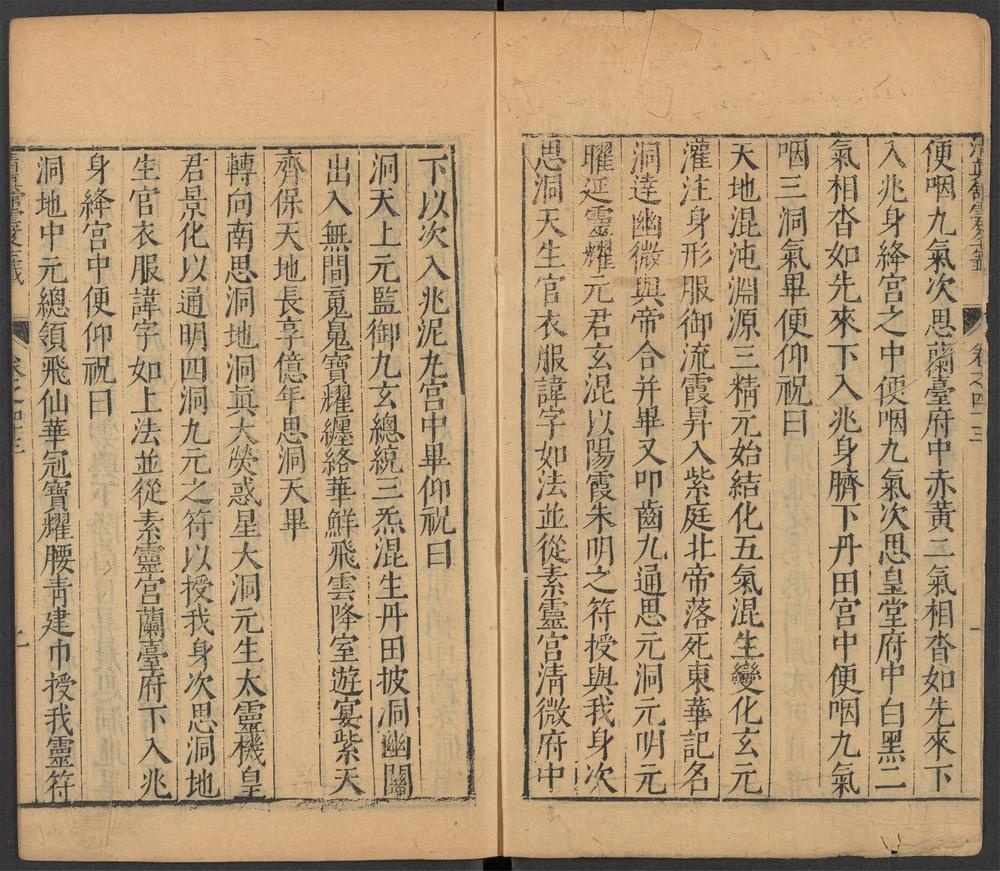 卷之四十三
便咽九氣次思蘭臺府中赤黃二氣相沓如先來下
入兆身絳宮之中便咽九氣次思皇堂府中白黑二
氣相沓如先來下入兆身臍下丹田宮中便咽九氣
咽三洞氣畢便仰祝曰
天地混沌淵源三精元始結化五氣混生變化玄元
灌注身形服御流霞昇入紫庭北帝落死東華記名
洞達幽微與帝合并畢又叩齒九通思元洞元明元
曜延靈耀元君玄混以陽霞朱明之符授與我身次
思洞天生官衣服諱字如法並從素靈宮清微府中
下以次入兆泥丸宮中畢仰祝曰
洞天上元監御九玄總統三炁混生丹田披洞幽關
出入無間嵬嵬寶耀纏絡華鮮飛雲降室遊宴紫天
齊保天地長享億年思洞天畢
轉向南思洞地洞眞大熒惑星大洞元生太靈機皇
君景化以通明四洞九元之符以授我身次思洞地
生官衣服諱字如上法並從素靈宮蘭臺府下入兆
身絳宮中便仰祝曰
洞地中元總領飛仙華冠寶耀腰青建巾授我靈符